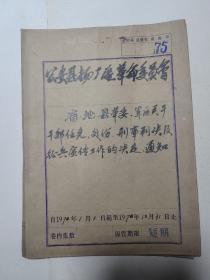 75
公安县杨厂区革命委员会
省、地、县党委、军队关于
干部任免、处份、刑事判决及
征兵宣传工作的决定、通知
自1970年1月1日起至1970年12月31日止
卷内张数 保管期限 短期